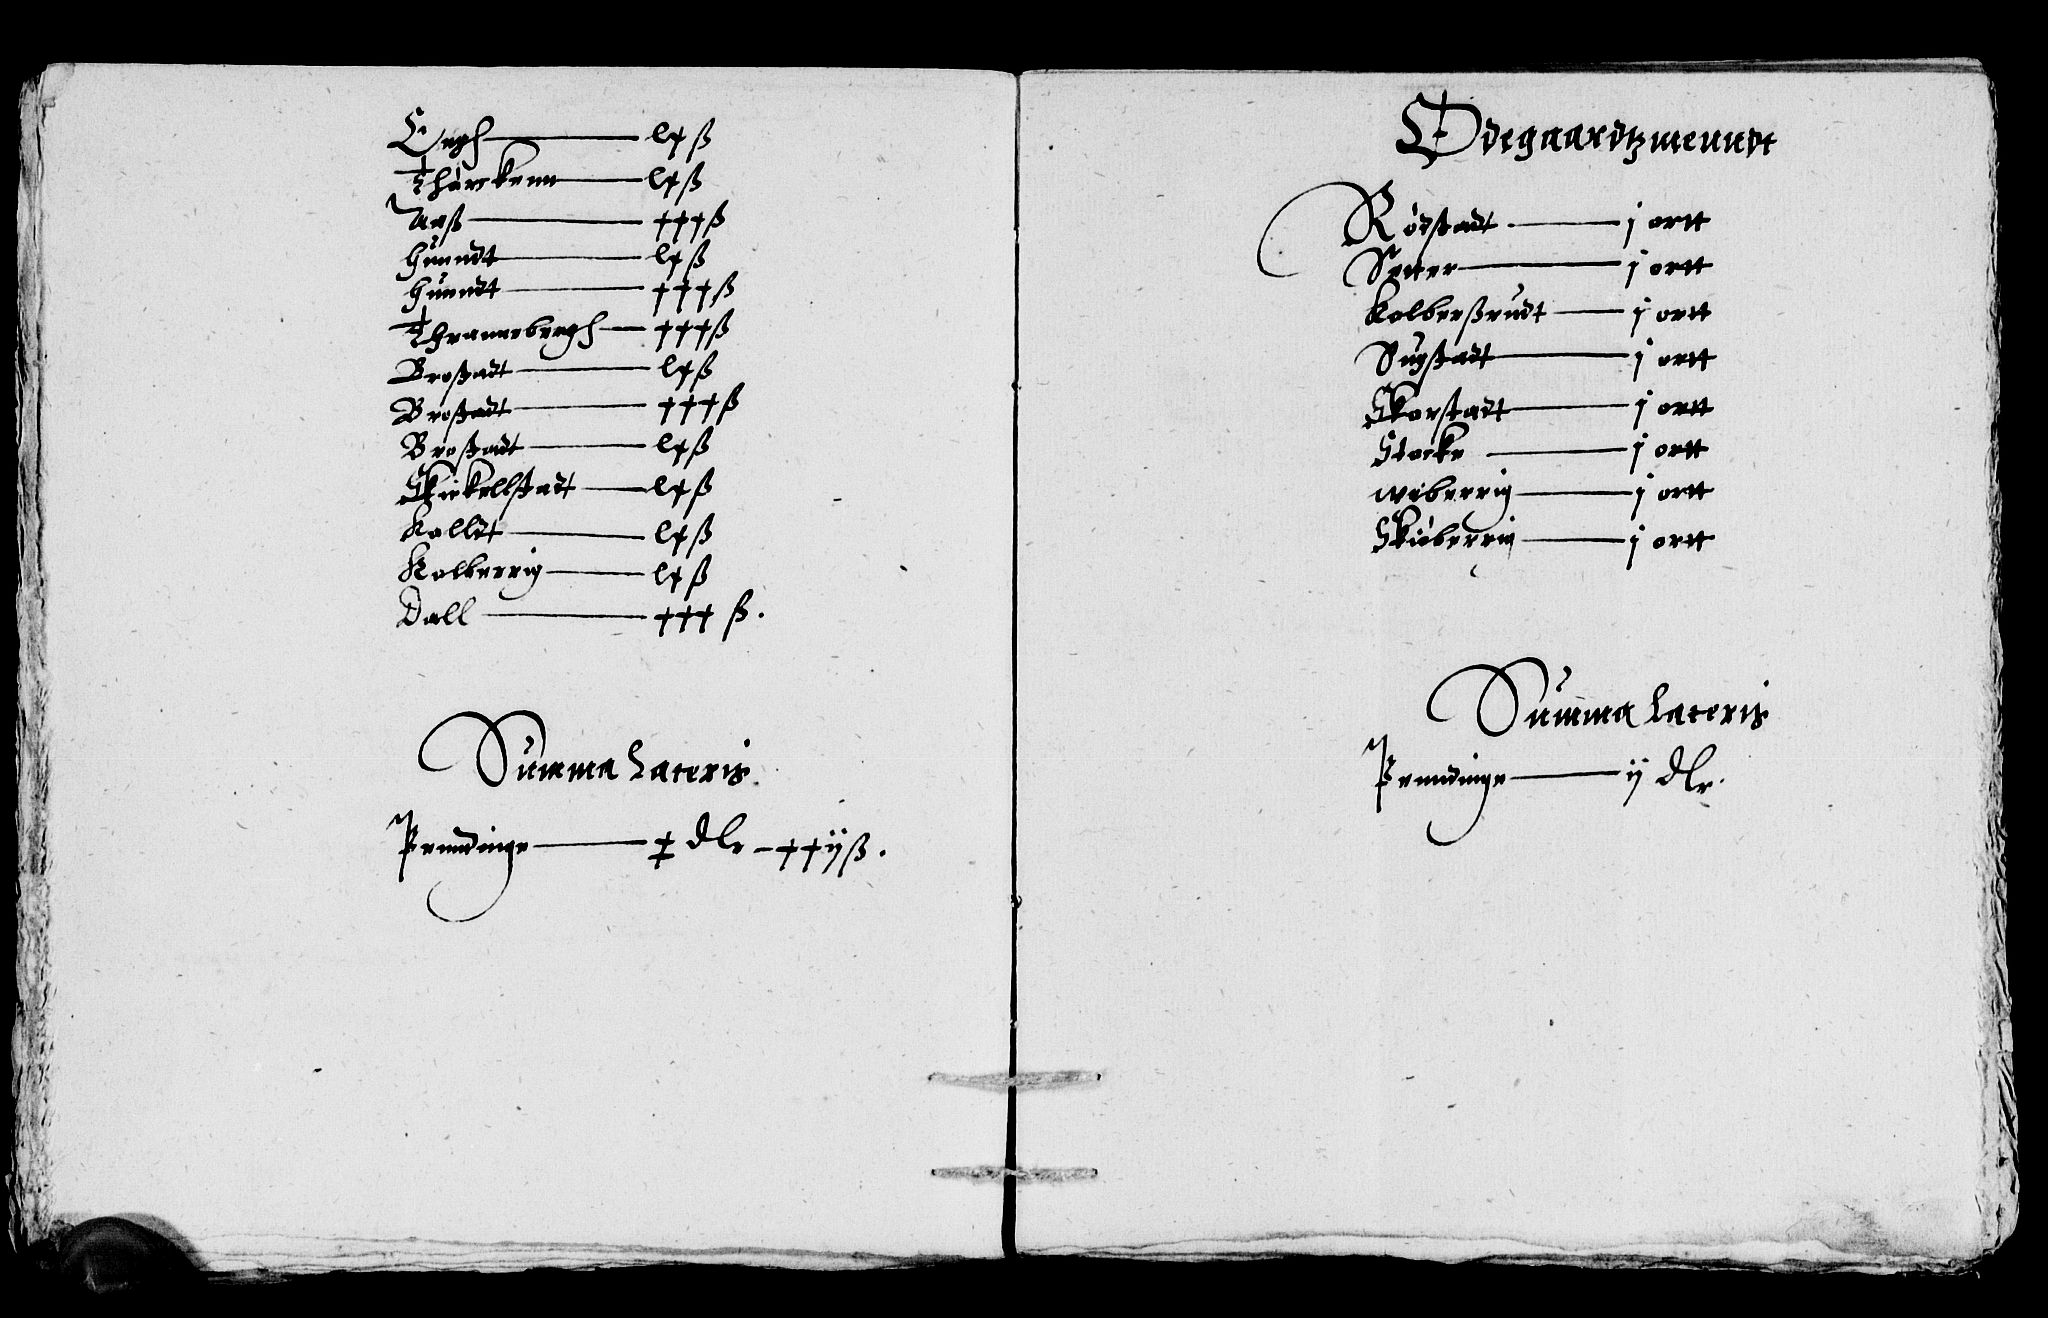 Eegh lx ß
Thorckenn lx ß
Aaß xxx ß
Hundt lx ß
Hundt xxx ß
Thrannebergh xxx ß
Broßtadt lx ß
Broßtadt xxx ß
Broßtadt lx ß
Skickellstadt lx ß
Kolldt lx ß
Kolberrig lx ß
Dall xxx ß.
Summa Lateris
Penndinge x dlr - xxij ß.
Ødegaardtzmenndt
Rödstadt j ortt
Seter j ortt
Kolberßrudt j ortt
Sugstadt j ortt
Skorstadt j ortt
Stocke j ortt
Weberrig j ortt
Skiöberrig j ortt
Summa Lateris
Penndinge ij dlr.